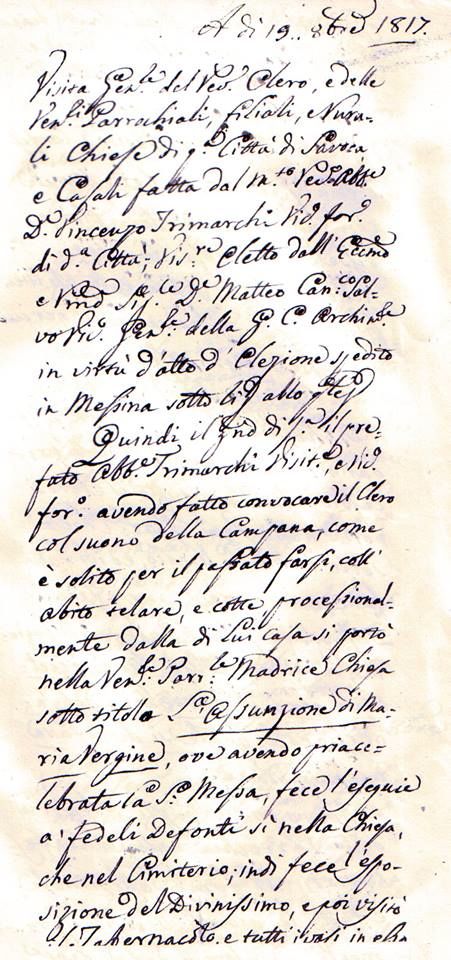 A dì 19.. 8bre 1817.
Visita Gen.le del Ven. Clero, e delle
Ven.li Parrochiali, filiali, e Nura-
li Chiese di q.a Città di Savoca
e Casali fatta dal m.to Ved. Abb.e
D.n Vincenzo Trimarchi Vic. for.o
di d.a Città, Vis.re eletto dall' Eccmo
e Sig. D.n Matteo Can.co Sal-
vo Vic. Gen.le della G. C. Archiv.le
in virtù d'atto d'Elezione spedito
in Messina sotto li
Quindi il di il pre-
fato Abb.e Trimarchi Visit.e, e Vic.
for.o avendo fatto convocare il Clero
col suono della Campana, come
è solito per il passato farsi, coll'
abito talare, e cotte, processional-
mente dalla di Lui casa si portò
nella Ven.le Parr.le Madrice Chiesa
sotto titolo S.a Assunzione di Ma-
ria Vergine, ove avendo pria ce-
lebrata la S.a Messa, fece l'esequie
a' fedeli Defonti sì nella Chiesa,
che nel Cimiterio; indi fece l'espo-
sizione del Divinissimo, e poi visitò
'l Tabernacolo e tutti i vasi in essa